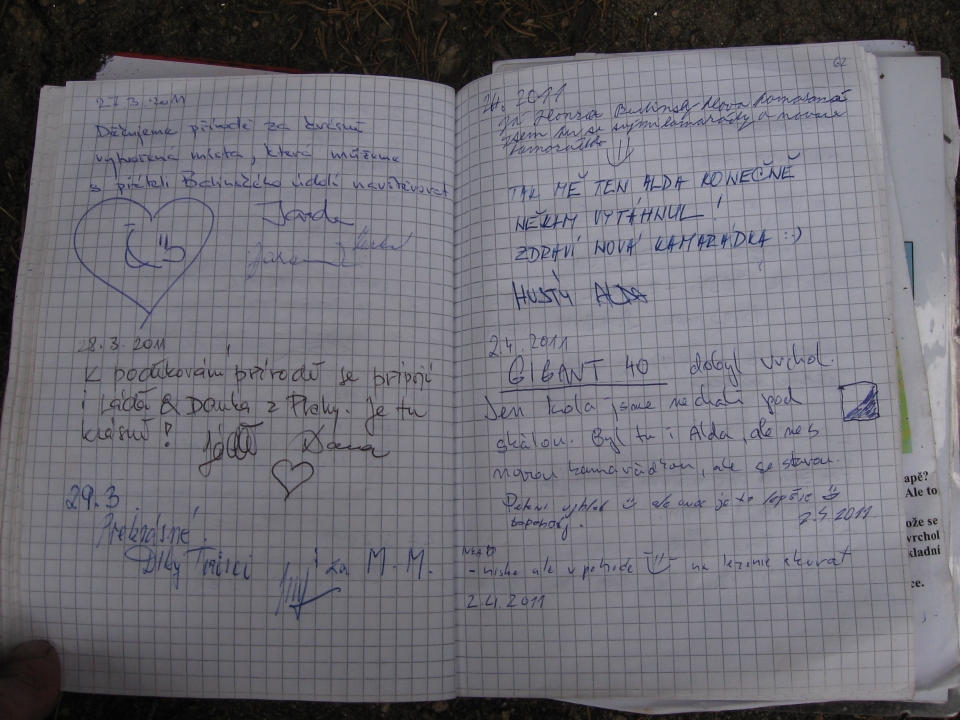 27.3.2011
Děkujeme přírodě za krásně
vytvořená místa, která můžeme
s přáteli údolí navštěvovat
Jarda
28.3.2011
K poděkování přírodě se připojí
i Láďa & Danka z Prahy. Je tu
krásně!
Dana
29.3.
Překrásné.
Díky
za M. M.
62
2.4.2011
Já Honza
jsem tu se svými kamarády a novou
kamarádkou
TAK MĚ TEN ALDA KONEČNĚ
NĚKAM VYTÁHNUL!
ZDRAVÍ NOVÁ KAMARÁDKA :-)
HUSTÝ ALDA
2.4.2011
GIGANT 40 dobyl vrchol.
Jen kola jsme nechali pod
skálou. Byl tu i Alda, ale ne s
novou kamarádkou, ale se starou.
Pěkný výhled ale je to lepší
2.4.2011
- ale v pohodě na
2.4.2011
apě?
Ale to
ože se
vrchol
kladní
ce.